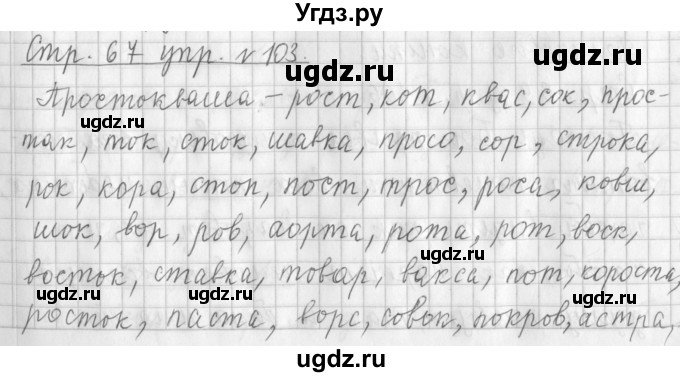 Угдз.ру
Стр. 67 упр. №103.
Простокваша – рост, кот, квас, сок, прос-
так, ток, сток, шавка, просо, сор, строка,
рок, кора, стоп, пост, трос, роса, ковш,
шок, вор, ров, аорта, рота, рот, воск,
восток, ставка, товар, вакса, пот, короста,
росток, паста, ворс, совок, покров, астра,
ugdz.ru
ugdz.ru
ugdz.ru
ugdz.ru
ugdz.ru
ugdz.ru
ugdz.ru
ugdz.ru
ugdz.ru
ugdz.ru
ugdz.ru